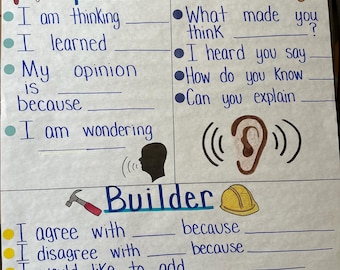 I am thinking ______
I learned ______
My opinion
is ______
because ______
I am wondering
______
What made you
think ______?
I heard you say ___
How do you know ___
Can you explain ___
Builder
I agree with ____ because ______
I disagree with ____ because ______
I would like to add ______